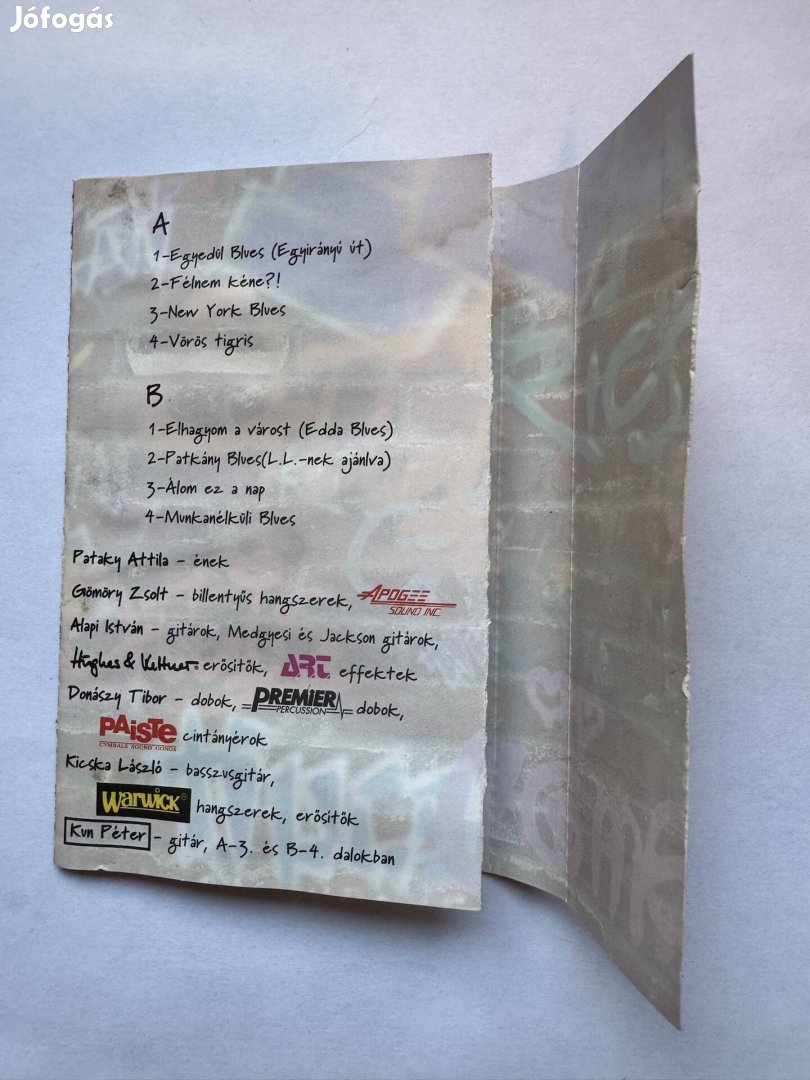 Jófogás
A
1-Egyedül Blues (Egyirányú út)
2-Félnem kéne?!
3-New York Blues
4-Vörös tigris
B
1-Elhagyom a várost (Edda Blues)
2-Patkány Blues(L.L.-nek ajánlva)
3-Álom ez a nap
4-Munkanélküli Blues
Pataky Attila - ének
Gömöry Zsolt - billentyűs hangszerek, APOGEE SOUND INC.
Alapi István - gitárok, Medgyesi és Jackson gitárok,
Hughes & Kettner erősítők, A.R.T. effektek
Donászy Tibor - dobok, PREMIER PERCUSSION dobok,
PAiSTe CYMBALS SOUND GONGS cintányérok
Kicska László - basszusgitár,
Warwick® hangszerek, erősítők
Kun Péter - gitár, A-3. és B-4. dalokban